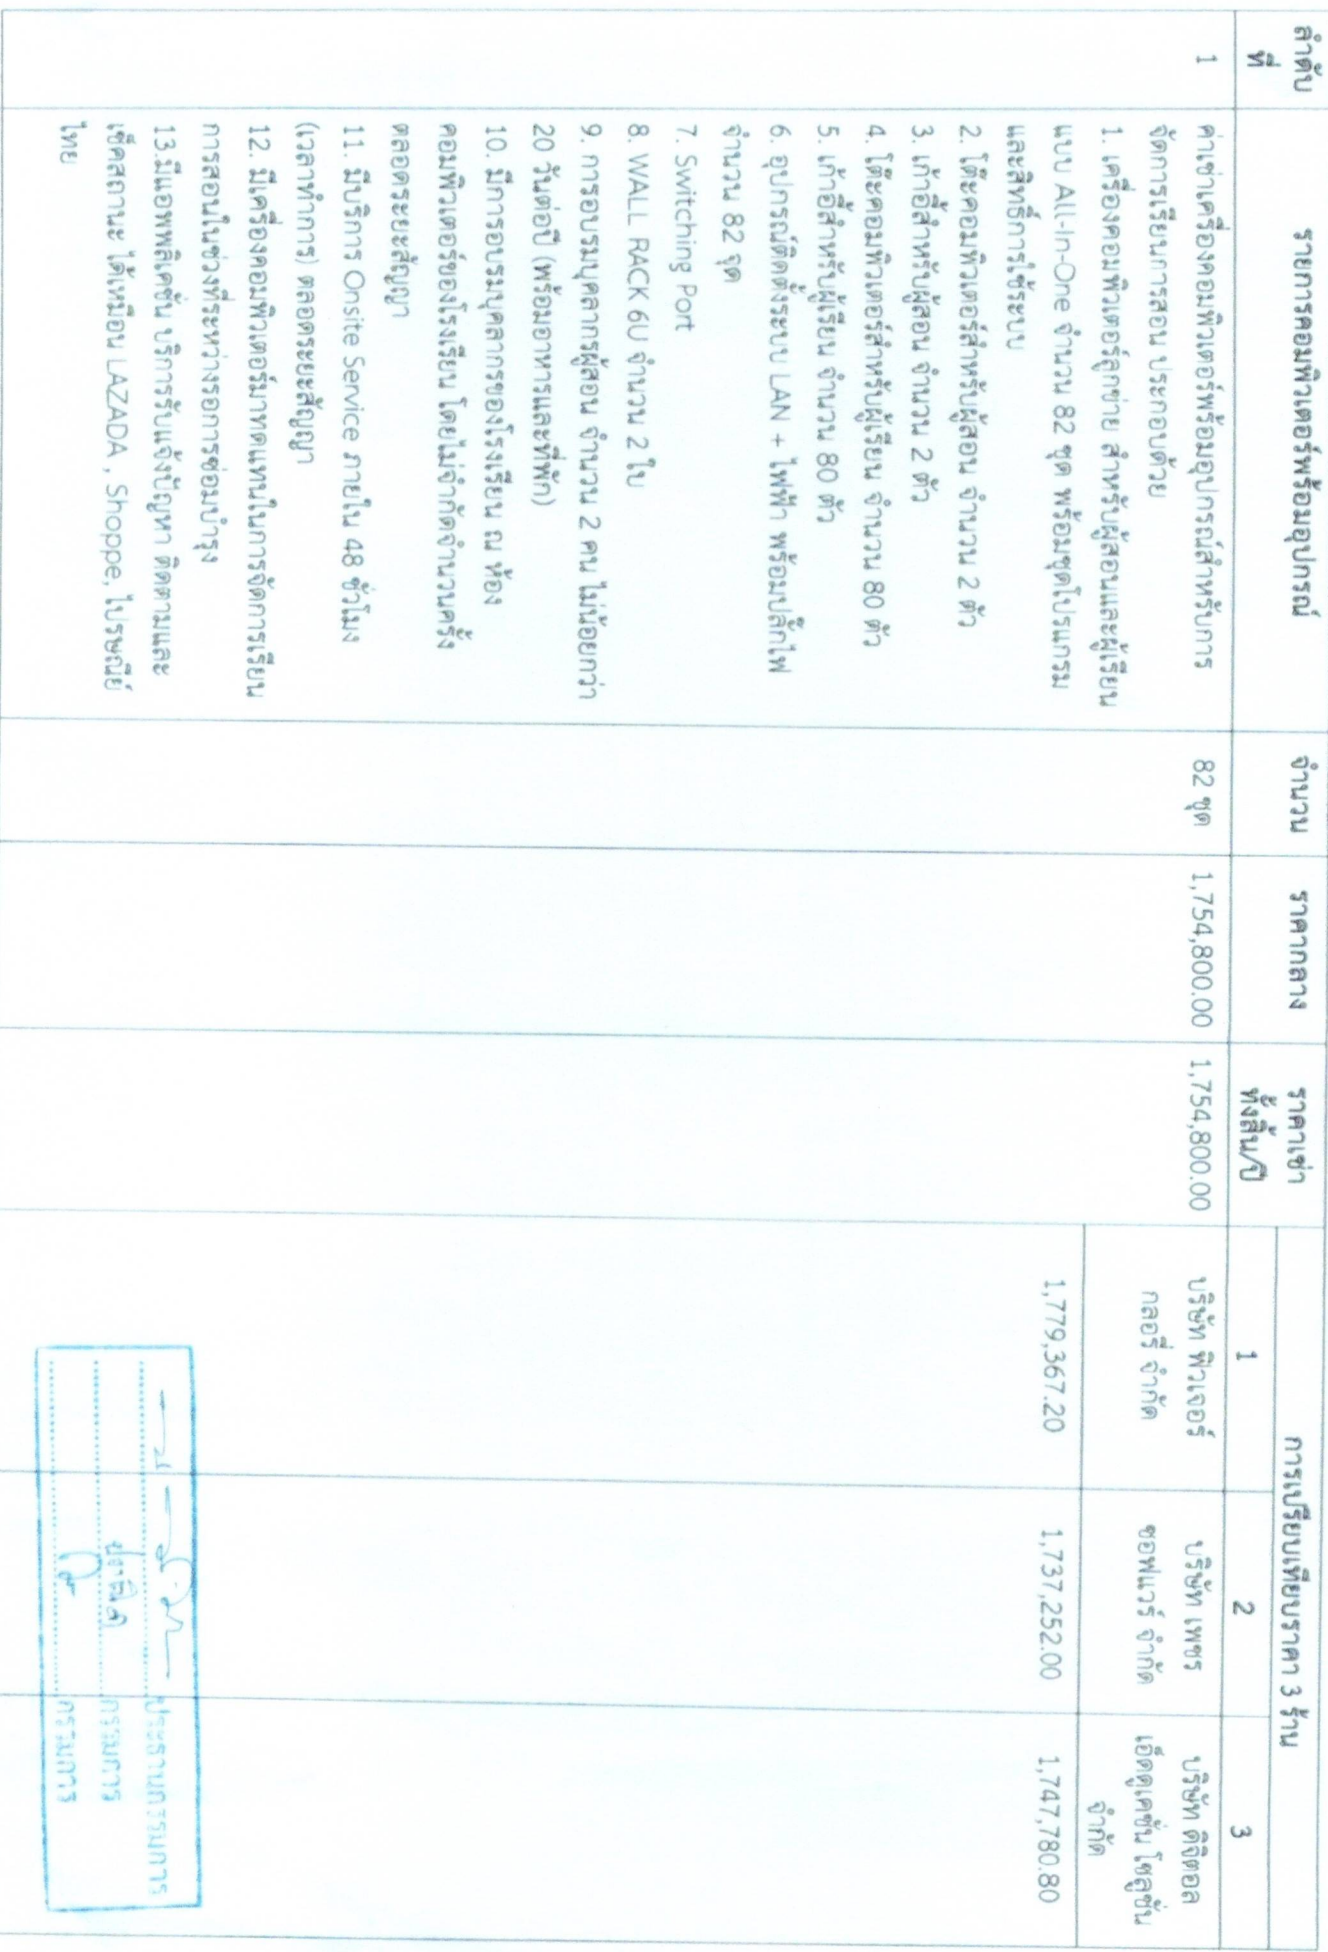 ลำดับ
ที่
รายการคอมพิวเตอร์พร้อมอุปกรณ์
จำนวน
ราคากลาง
ราคาเช่า
ทั้งสิ้น/ปี
การเปรียบเทียบราคา 3 ร้าน
1
2
3
1
ค่าเช่าเครื่องคอมพิวเตอร์พร้อมอุปกรณ์สำหรับการ
จัดการเรียนการสอน ประกอบด้วย
1. เครื่องคอมพิวเตอร์ลูกข่าย สำหรับผู้สอนและผู้เรียน
แบบ All-In-One จำนวน 82 ชุด พร้อมชุดโปรแกรม
และสิทธิ์การใช้ระบบ
2. โต๊ะคอมพิวเตอร์สำหรับผู้สอน จำนวน 2 ตัว
3. เก้าอี้สำหรับผู้สอน จำนวน 2 ตัว
4. โต๊ะคอมพิวเตอร์สำหรับผู้เรียน จำนวน 80 ตัว
5. เก้าอี้สำหรับผู้เรียน จำนวน 80 ตัว
6. อุปกรณ์ติดตั้งระบบ LAN + ไฟฟ้า พร้อมปลั๊กไฟ
จำนวน 82 จุด
7. Switching Port
8. WALL RACK 6U จำนวน 2 ใบ
9. การอบรมบุคลากรผู้สอน จำนวน 2 คน ไม่น้อยกว่า
20 วันต่อปี (พร้อมอาหารและที่พัก)
10. มีการอบรมบุคลากรของโรงเรียน ณ ห้อง
คอมพิวเตอร์ของโรงเรียน โดยไม่จำกัดจำนวนครั้ง
ตลอดระยะสัญญา
11. มีบริการ Onsite Service ภายใน 48 ชั่วโมง
(เวลาทำการ) ตลอดระยะสัญญา
12. มีเครื่องคอมพิวเตอร์มาทดแทนในการจัดการเรียน
การสอนในช่วงที่ระหว่างรอการซ่อมบำรุง
13.มีแอพพลิเคชั่น บริการรับแจ้งปัญหา ติดตามและ
เช็คสถานะ ได้เหมือน LAZADA , Shoppe, ไปรษณีย์
ไทย
82 ชุด
1,754,800.00
1,754,800.00
บริษัท ฟิวเจอร์
กลอรี่ จำกัด
1,779,367.20
บริษัท เพชร
ซอฟแวร์ จำกัด
1,737,252.00
บริษัท ดิจิตอล
เอ็ดดูเคชั่น โซลูชั่น
จำกัด
1,747,780.80
ประธานกรรมการ
กรรมการ
กรรมการ